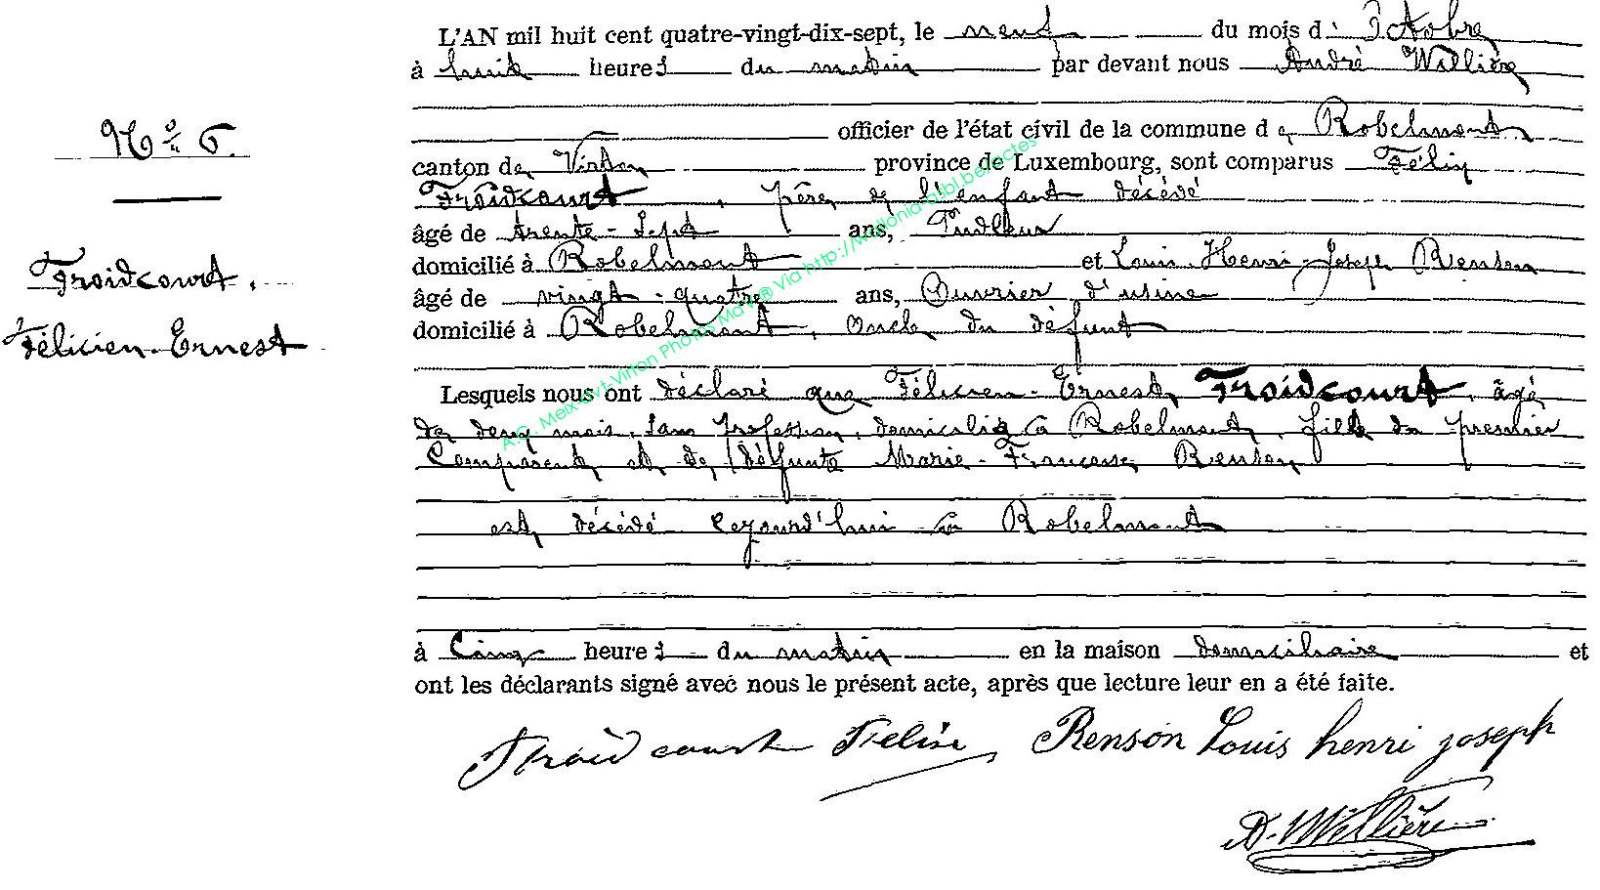 N° 6.
Froidcourt,
Félicien-Ernest
L'AN mil huit cent quatre-vingt-dix-sept, le neuf du mois d'Octobre
à huit heures du matin par devant nous André Willière
officier de l'état civil de la commune de Robelmont,
canton de Virton province de Luxembourg, sont comparus Félix
Froidcourt, père de l'enfant décédé
âgé de trente-sept ans, Pudleur
domicilié à Robelmont et Louis-Henri-Joseph Renson
âgé de vingt-quatre ans, Ouvrier d'usine
domicilié à Robelmont, oncle du défunt
Lesquels nous ont déclaré que Félicien-Ernest Froidcourt, âgé
de deux mois, sans profession, domicilié à Robelmont, fils du premier
Comparent et de défunte Marie-Françoise Renson
est décédé cejourd'hui à Robelmont
à Cinq heures du matin en la maison domiciliaire et
ont les déclarants signé avec nous le présent acte, après que lecture leur en a été faite.
Froidcourt Félix Renson Louis henri joseph
A. Willière
A.G. Meix-dvt-Virton Photos Ma Via http://wallonia-asbl.be/actes